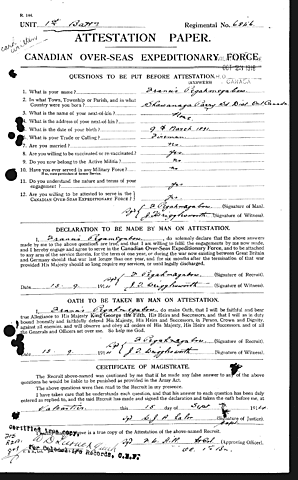 R. 144.
UNIT 1st Battn Regimental No. 6846
ATTESTATION PAPER.
CANADIAN OVER-SEAS EXPEDITIONARY FORCE.
CANADA
QUESTIONS TO BE PUT BEFORE ATTESTATION.
(ANSWERS)
1. What is your name?
Francis Pegahmagabow
2. In what Town, Township or Parish, and in what Country were you born?
Shawanaga Parry Sd Dist Ont Canada
3. What is the name of your next-of-kin?
None
4. What is the address of your next-of-kin?
5. What is the date of your birth?
9th March 1891
6. What is your Trade or Calling?
Fireman
7. Are you married?
no
8. Are you willing to be vaccinated or re-vaccinated?
yes
9. Do you now belong to the Active Militia?
no
10. Have you ever served in any Military Force?
no
11. Do you understand the nature and terms of your engagement?
yes
12. Are you willing to be attested to serve in the CANADIAN OVER-SEAS EXPEDITIONARY FORCE?
yes
F Pegahmagabow (Signature of Man).
(Signature of Witness).
DECLARATION TO BE MADE BY MAN ON ATTESTATION.
I, Francis Pegahmagabow, do solemnly declare that the above answers
made by me to the above questions are true, and that I am willing to fulfil the engagements by me now made,
and I hereby engage and agree to serve in the Canadian Over-Seas Expeditionary Force, and to be attached to
any arm of the service therein, for the term of one year, or during the war now existing between Great Britain
and Germany should that war last longer than one year, and for six months after the termination of that war
provided His Majesty should so long require my services, or until legally discharged.
F Pegahmagabow (Signature of Recruit).
Date 15 - 9 (Signature of Witness)
OATH TO BE TAKEN BY MAN ON ATTESTATION.
I, Francis Pegahmagabow, do make Oath, that I will be faithful and bear
true Allegiance to His Majesty King George the Fifth, His Heirs and Successors, and that I will as in duty
bound honestly and faithfully defend His Majesty, His Heirs and Successors, in Person, Crown and Dignity,
against all enemies, and will observe and obey all orders of His Majesty, His Heirs and Successors, and of all
the Generals and Officers set over me. So help me God.
F Pegahmagabow (Signature of Recruit)
Date 15 (Signature of Witness)
CERTIFICATE OF MAGISTRATE.
The Recruit above-named was cautioned by me that if he made any false answer to any of the above
questions he would be liable to be punished as provided in the Army Act.
The above questions were then read to the Recruit in my presence.
I have taken care that he understands each question, and that his answer to each question has been duly
entered as replied to, and the said Recruit has made and signed the declaration and taken the oath before me, at
Valcartier this 15 day of Sept 1914
Certified true copy
true copy of the Attestation of the above-named Recruit.
(Approving Officer)
For Records, C.E.F.